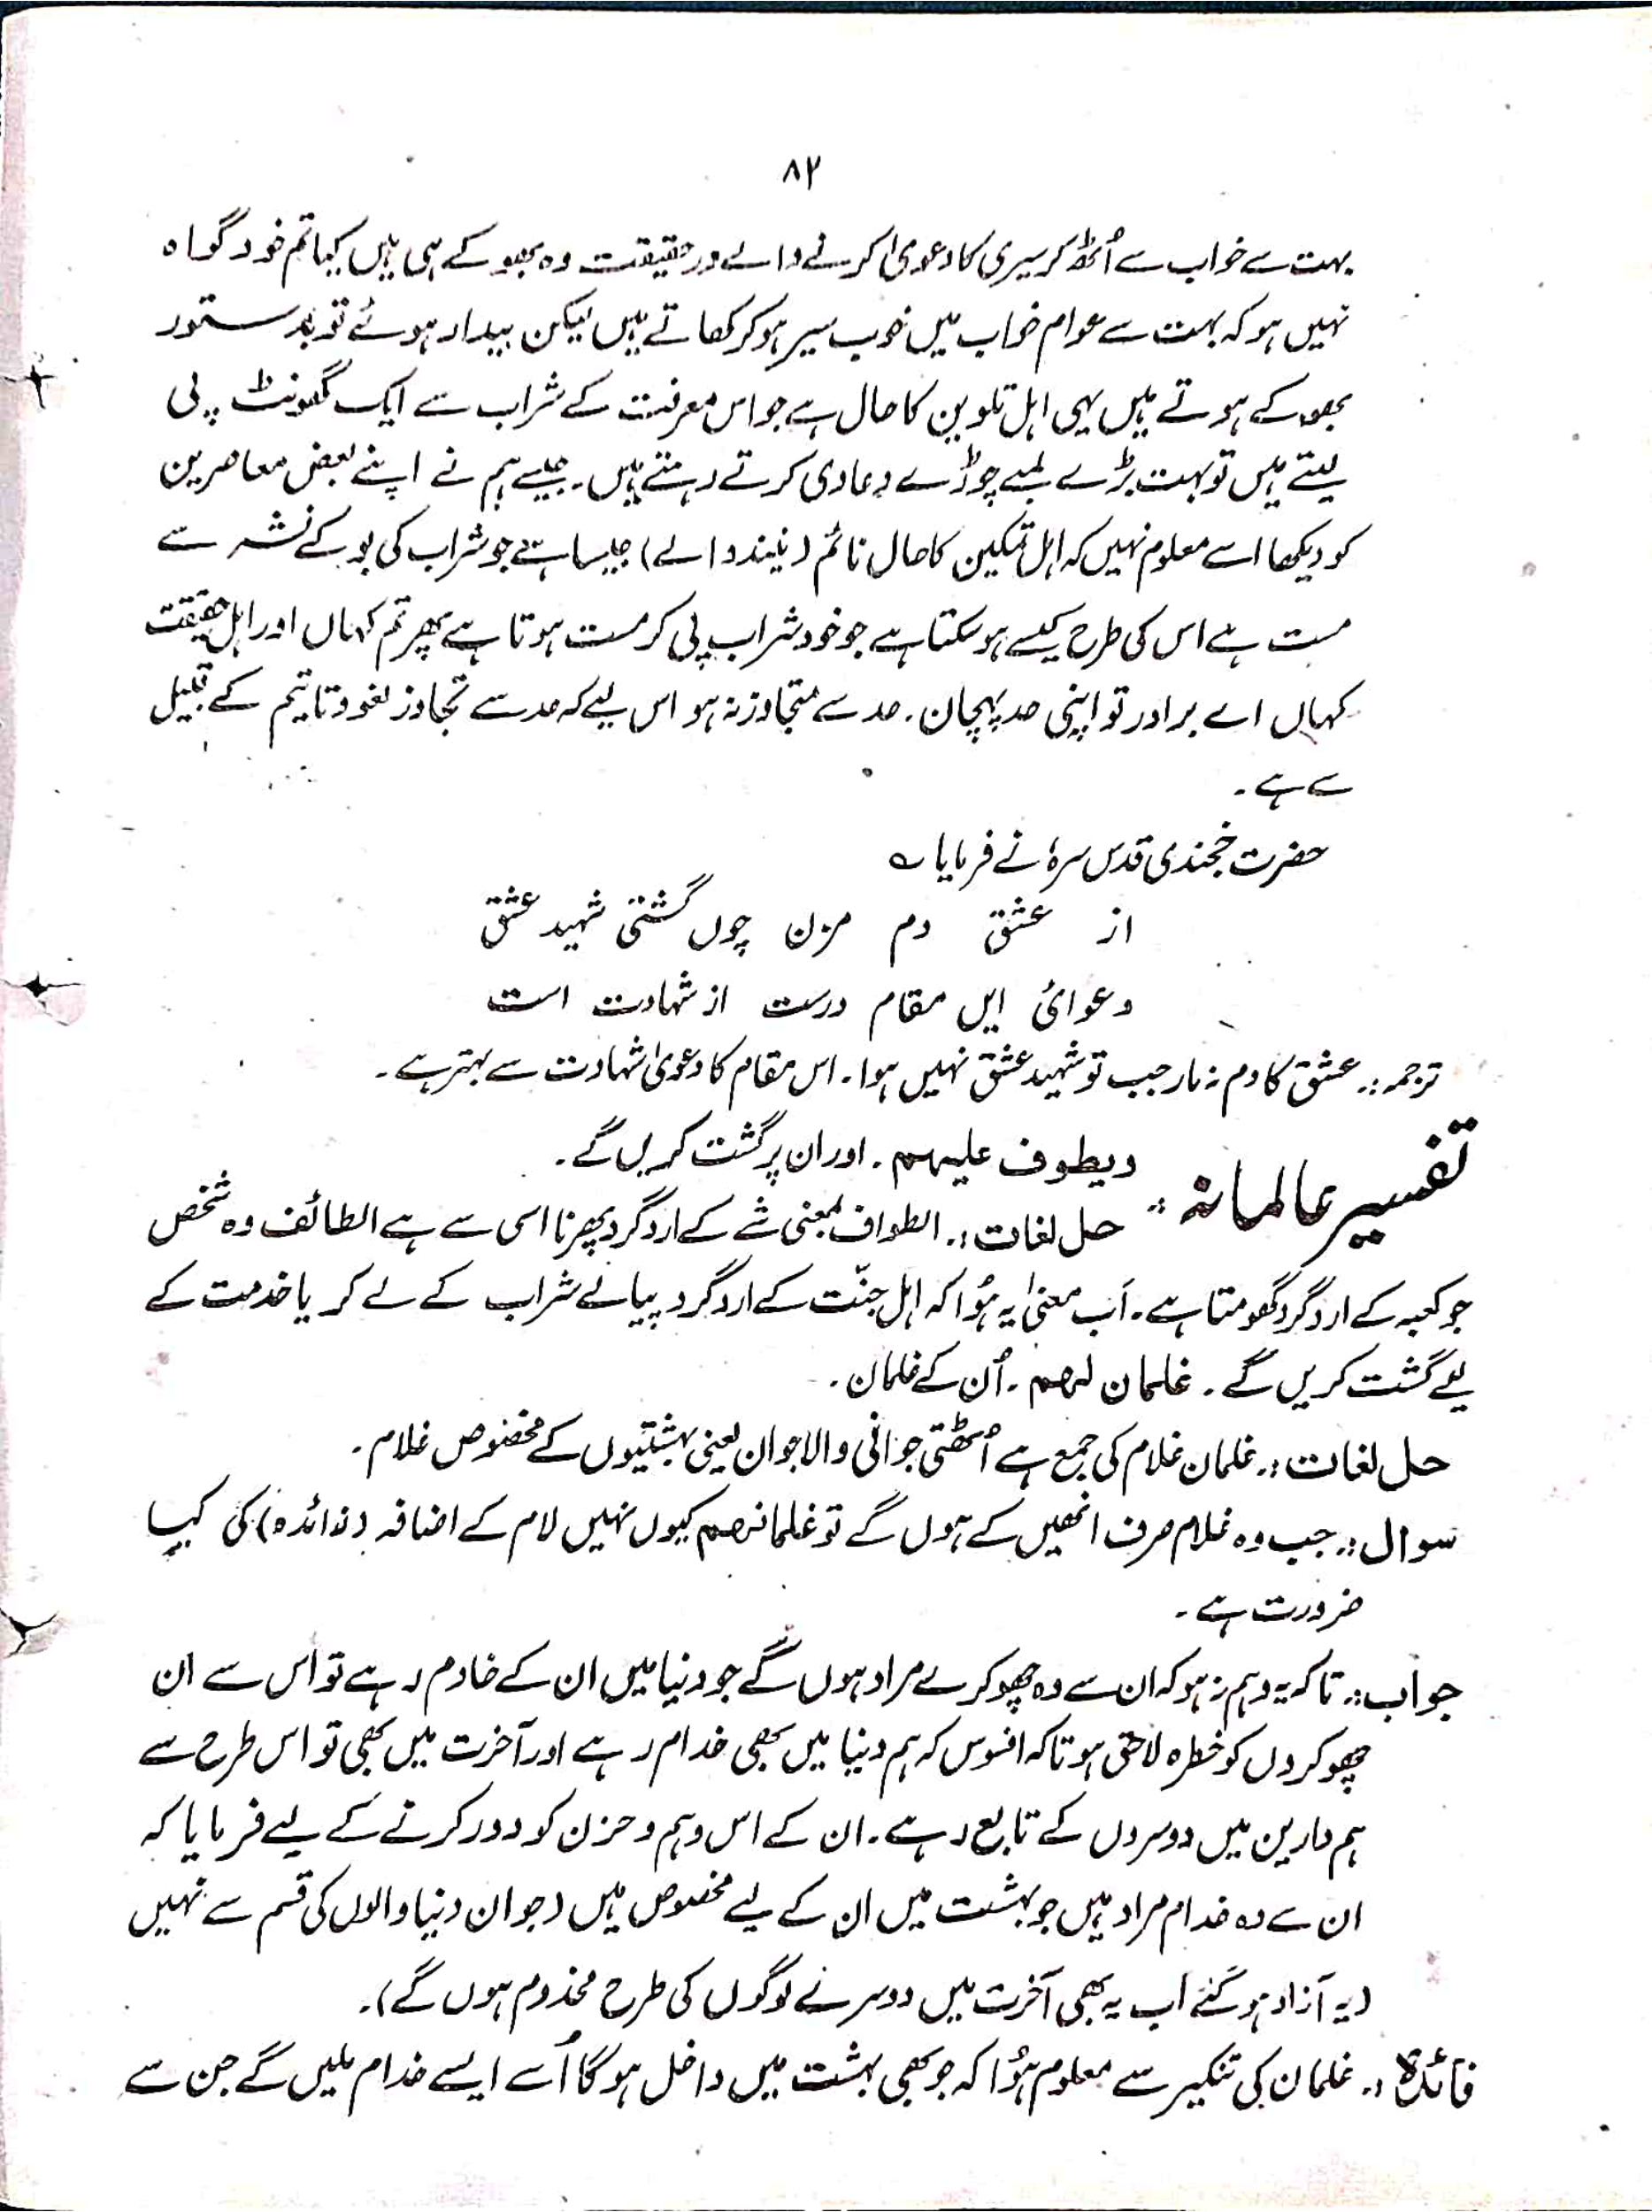 ۸۲
بہت سے خواب سے اُٹھ کر سیری کا دعویٰ کرنے والے درحقیقت وہ بھوکے ہی ہیں کیا تم خود گواہ
نہیں ہو کہ بہت سے عوام خواب میں خوب سیر ہو کر کھاتے ہیں لیکن بیدار ہوئے تو بدستور
بھوکے ہوتے ہیں یہی اہل تلوین کا حال ہے جو اس معرفت کے شراب سے ایک گھونٹ پی
لیتے ہیں تو بہت بڑے لمبے چوڑے دعاوی کرتے رہتے ہیں۔ جیسے ہم نے اپنے بعض معاصرین
کو دیکھا اسے معلوم نہیں کہ اہل تمکین کا حال نائم (نیند والے) جیسا ہے جو شراب کی بو کے نشہ سے
مست ہے اس کی طرح کیسے ہو سکتا ہے جو خود شراب پی کر مست ہوتا ہے پھر تم کہاں اور اہل حقیقت
کہاں اے برادر تو اپنی حد پہچان۔ حد سے متجاوز نہ ہو اس لیے کہ حد سے تجاوز لغو و تاثیم کے قبیل
سے ہے۔
حضرت خجندی قدس سرہٗ نے فرمایا ؎
از عشق دم مزن چوں گشتی شہید عشق
دعوائ ایں مقام درست از شہادت است
ترجمہ:۔ عشق کا دم نہ مار جب تو شہید عشق نہیں ہوا۔ اس مقام کا دعویٰ شہادت سے بہتر ہے۔
تفسیر عالمانہ :۔ ویطوف علیہم۔ اور ان پر گشت کریں گے۔
حل لغات:۔ الطواف بمعنی شے کے اردگرد پھرنا اسی سے ہے الطائف وہ شخص
جو کعبہ کے اردگرد گھومتا ہے۔ اَب معنیٰ یہ ہُوا کہ اہل جنّت کے اردگرد پیالے شراب کے لے کر یا خدمت کے
لیے گشت کریں گے۔ غلمان لہم۔ اُن کے غلمان۔
حل لغات:۔ غلمان غلام کی جمع ہے اُٹھتی جوانی والا جوان یعنی بہشتیوں کے مخصوص غلام۔
سوال:۔ جب وہ غلام صرف انھیں کے ہوں گے تو غلمانہم کیوں نہیں لام کے اضافہ (زائدہ) کی کیا
ضرورت ہے۔
جواب:۔ تاکہ یہ وہم نہ ہو کہ ان سے وہ چھوکرے مراد ہوں گے جو دنیا میں ان کے خادم رہے تو اس سے ان
چھوکروں کو خطرہ لاحق ہوتا کہ افسوس کہ ہم دنیا میں بھی خدام رہے اور آخرت میں بھی تو اس طرح سے
ہم دارین میں دوسروں کے تابع رہے۔ ان کے اس وہم و حزن کو دور کرنے کے لیے فرمایا کہ
ان سے وہ خدام مراد ہیں جو بہشت میں ان کے لیے مخصوص ہیں (جو ان دنیا والوں کی قسم سے نہیں
(یہ آزاد ہو گئے اب یہ بھی آخرت میں دوسرے لوگوں کی طرح مخدوم ہوں گے)۔
فائدہ:۔ غلمان کی تنکیر سے معلوم ہُوا کہ جو بھی بہشت میں داخل ہوگا اُسے ایسے خدام ملیں گے جن سے